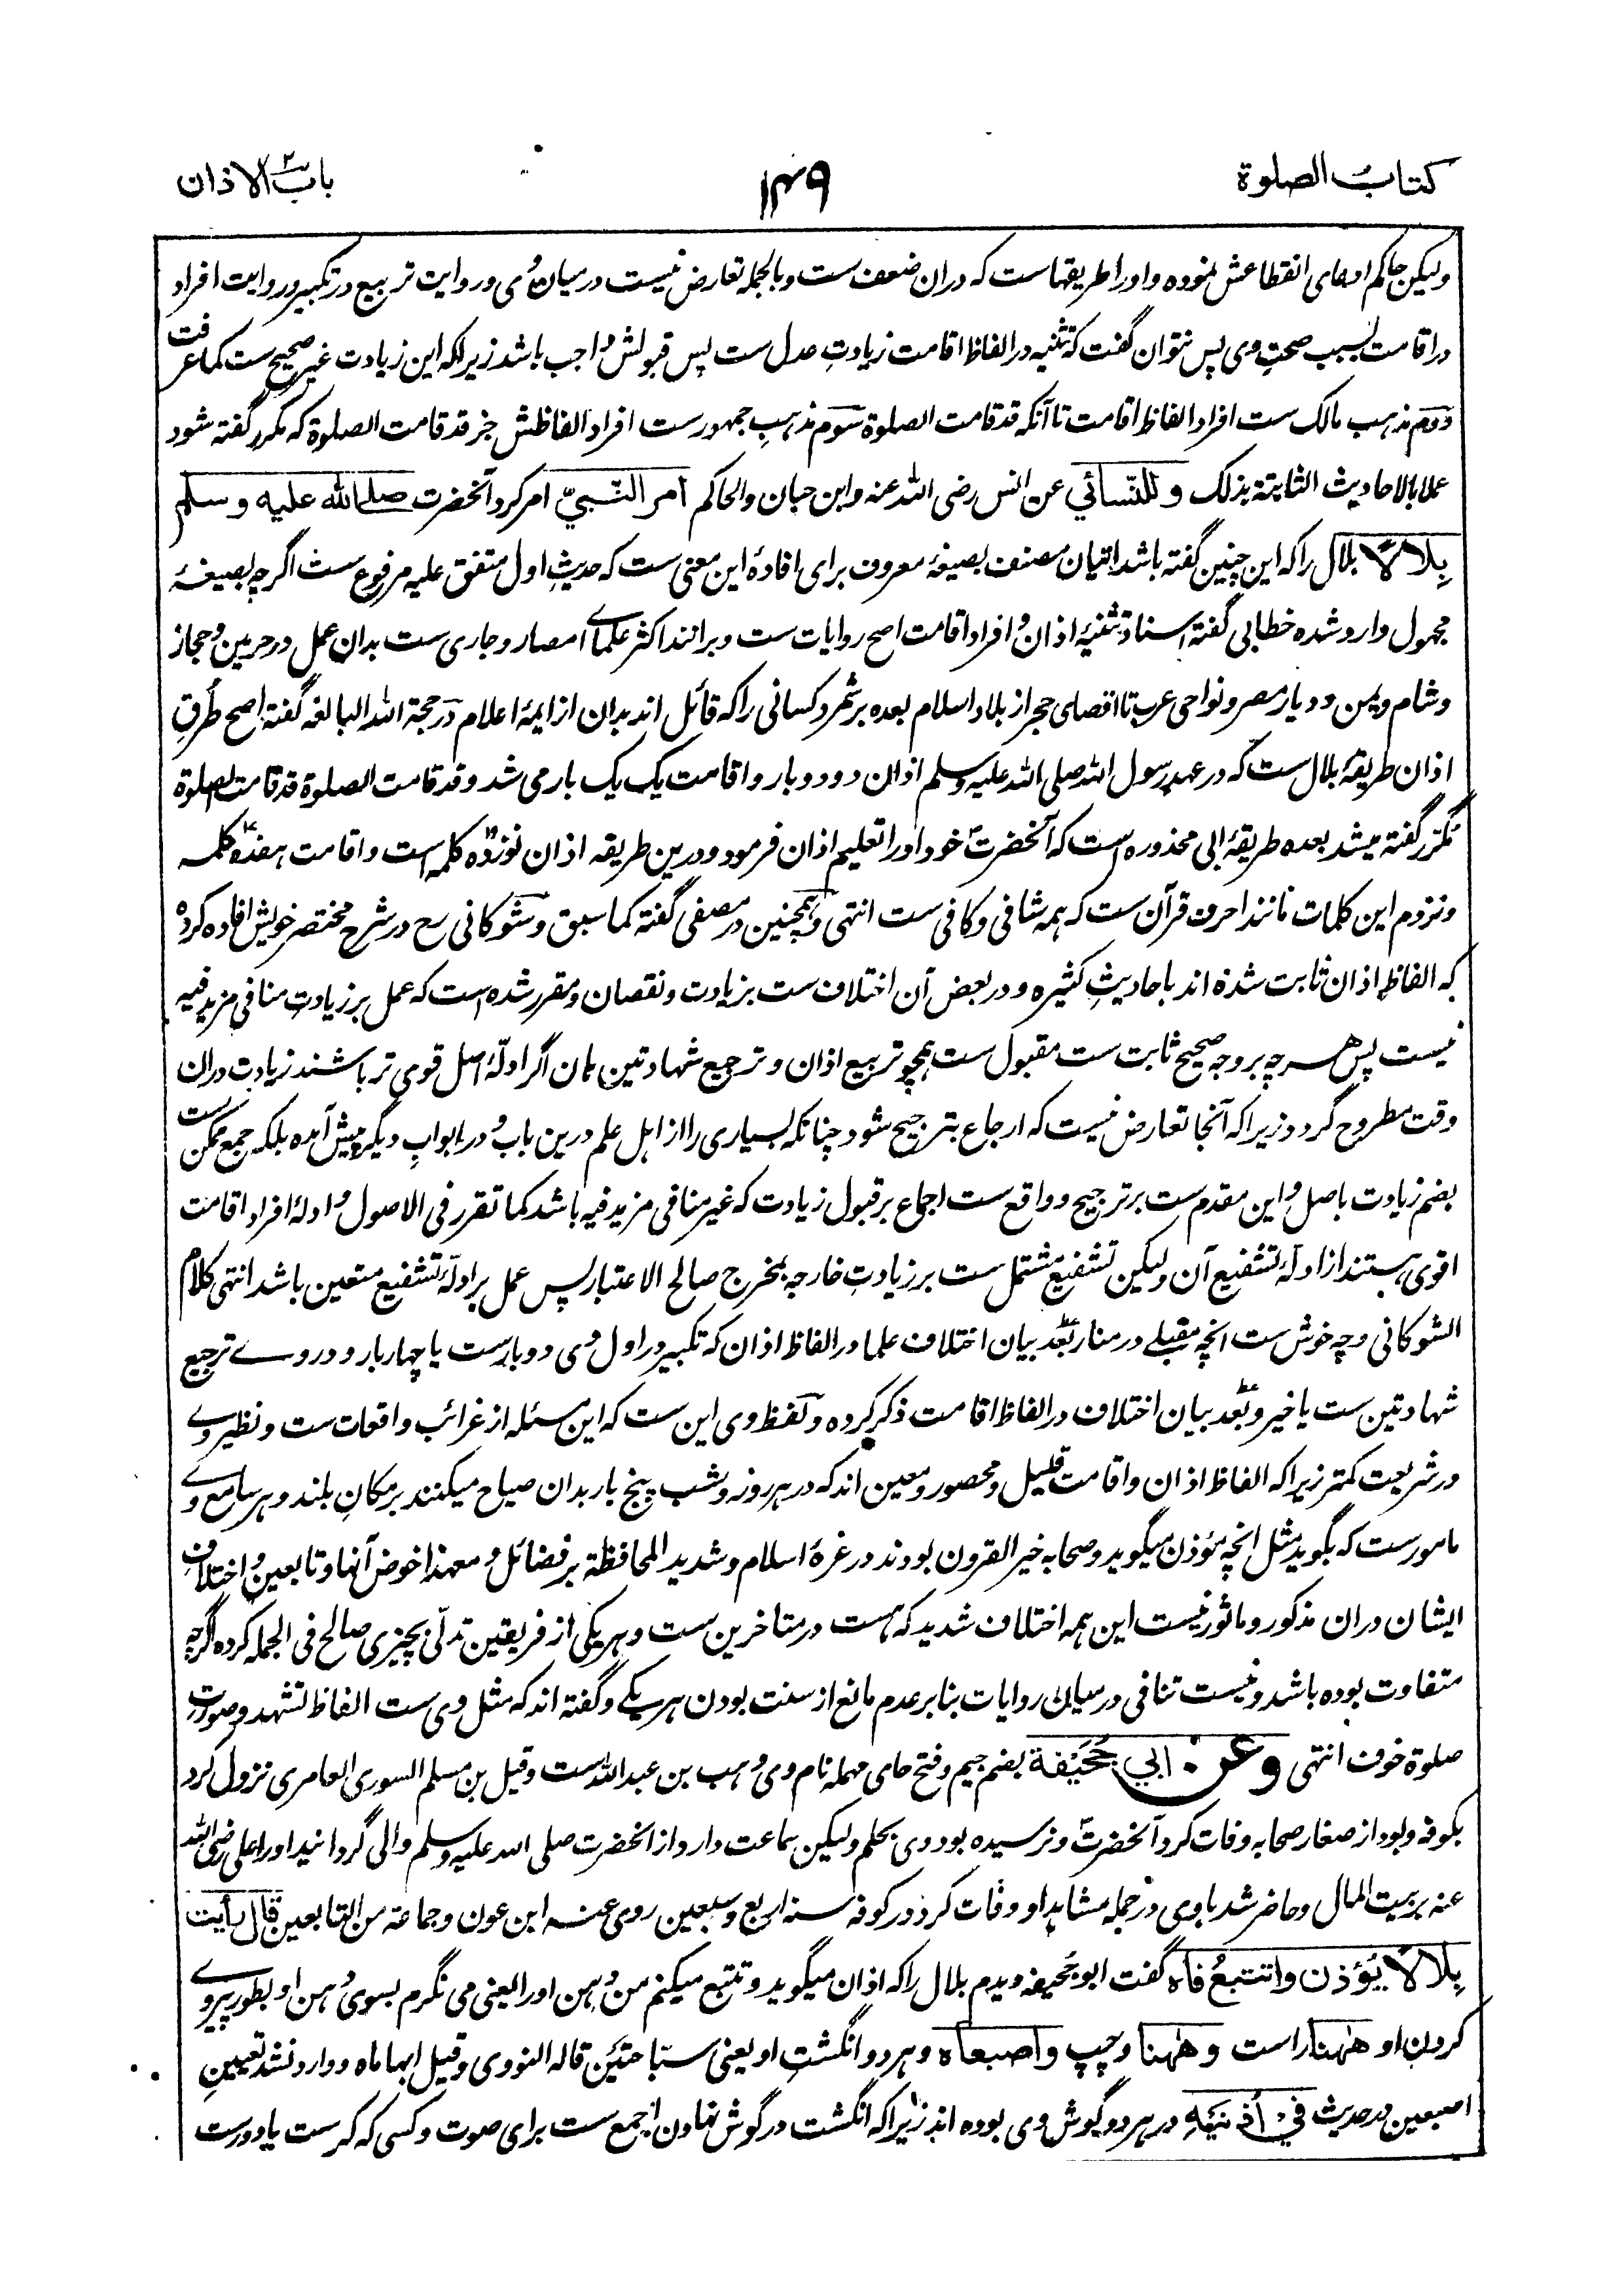 کتاب الصلوة
۱۴۹
باب الاذان
ولیکن حاکم ادعای انقطاعش نموده و او را طریقهاست که دران ضعف ست و بالجمله تعارض نیست در میان وی و روایت تربیع در تکبیر و روایت افراد
در اقامت بسبب صحت وی پس نتوان گفت که تثنیه در الفاظ اقامت زیادت عدل ست پس قبولش واجب باشد زیرا که این زیادت غیر صحیح ست کما عرفت
دوم مذهب مالک ست افراد الفاظ اقامت تا آنکه قد قامت الصلوة سوم مذهب جمهور ست افراد الفاظش جز قد قامت الصلوة که مکرر گفته شود
عملا بالاحادیث الثابتة بذلک وللنسائي عن انس رضی الله عنه و ابن حبان والحاکم امر النبي امر کرد آنحضرت صلى الله عليه وسلم
بلالا بلال را که این چنین گفته باشد اتیان مصنف بصیغهٔ معروف برای افادهٔ این معنی ست که حدیث اول متفق علیه مرفوع ست اگرچه بصیغهٔ
مجهول وارد شده خطابی گفته اسناد تثنیهٔ اذان و افراد اقامت اصح روایات ست و برانند اکثر علمای امصار و جاری ست بدان عمل در حرمین و حجاز
و شام و یمن و دیار مصر و نواحی عرب تا اقصای حجر از بلاد اسلام بعده برشمرد کسانی را که قائل اند بدان از ایمهٔ اعلام در حجة الله البالغه گفته اصح طُرقِ
اذان طریقهٔ بلال ست که در عهد رسول الله صلی الله علیه وسلم اذان دو دو بار و اقامت یک یک بار می شد و قد قامت الصلوة قد قامت الصلوة
مکرر گفته میشد بعده طریقهٔ ابی محذوره است که آنحضرت خود او را تعلیم اذان فرمود و درین طریقه اذان نوزده کلمه است و اقامت هفده کلمه
و نزدم این کلمات مانند احرف قرآن ست که همه شافی و کافی ست انتهی و همچنین در مصفی گفته کما سبق و شوکانی رح در شرح مختصر خویش افاده کرده
که الفاظ اذان ثابت شده اند باحادیث کثیره و در بعض آن اختلاف ست بزیادت و نقصان و مقرر شده است که عمل بر زیادت منافی مزید فیه
نیست پس هرچه بر وجه صحیح ثابت ست مقبول ست همچو تربیع اذان و ترجیع شهادتین بان اگر ادلهٔ اصل قوی تر باشند زیادت دران
وقت مطروح گردد زیرا که آنجا تعارض نیست که ارجاع بترجیح شود چنانکه بسیاری را از اهل علم درین باب و در ابواب دیگر پیش آمده بلکه جمع ممکن ست
بضم زیادت باصل و این مقدم ست بر ترجیح و واقع ست اجماع بر قبول زیادت که غیر منافی مزید فیه باشد کما تقرر فی الاصول و ادلهٔ افراد اقامت
اقوی هستند از ادلهٔ تشفیع آن ولیکن تشفیع مشتمل ست بر زیادت خارجه بمخرج صالح الاعتبار پس عمل بر ادلهٔ تشفیع متعین باشد انتهی کلام
الشوکانی و چه خوش ست انچه مقبلی در منار بعد بیان اختلاف علما در الفاظ اذان که تکبیر در اول وی دو بار ست یا چهار بار و در وے ترجیع
شهادتین ست یا خیر و بعد بیان اختلاف در الفاظ اقامت ذکر کرده و لفظ وی این ست که این مسئله از غرائب واقعات ست و نظیر وے
در شریعت کمتر زیرا که الفاظ اذان و اقامت قلیل و محصور و معین اند که در هر روز و شب پنج بار بدان صیاح میکنند بر مکان بلند و هر سامع وے
مامور ست که بگوید مثل انچه مؤذن میگوید و صحابه خیر القرون بودند در غرهٔ اسلام و شدید المحافظة بر فضائل و معهذا خوض آنها و تابعین و اختلاف
ایشان دران مذکور و ماثور نیست این همه اختلاف شدید که هست در متاخرین ست و هر یکی از فریقین تدلی بچیزی صالح فی الجمله کرده اگرچه
متفاوت بوده باشد و نیست تنافی در میان روایات بنا بر عدم مانع از سنت بودن هر یکے و گفته اند که مثل وی ست الفاظ تشهد و صورت
صلوة خوف انتهی وعن ابي جُحَيْفة بضم جیم و فتح حای مهمله نام وی وهب بن عبدالله ست و قیل بن مسلم السوری العامری نزول کرد
بکوفه و بود از صغار صحابه وفات کرد آنحضرت و نرسیده بود وی بحلم ولیکن سماعت دارد از آنحضرت صلی الله علیه وسلم والی گردانید او را علی رضی الله
عنه بر بیت المال و حاضر شد باوی در جمله مشاهد او وفات کرد در کوفه سنه اربع و سبعین روی عنه ابن عون و جماعة من التابعین قال رأيت
بلالا يُؤذن واتتبعُ فاه گفت ابو جحیفه دیدم بلال را که اذان میگوید و تتبع میکنم من دهن او را یعنی می نگرم بسوی دهن او بطور پیروے
کردن او ههنا راست وههنا و چپ واصبعاه و هر دو انگشت او یعنی سبّاحتَین قاله النووی و قیل ابهاماه و وارد نشد تعیین
اصبعین در حدیث في اُذنيه در هر دو گوش وی بوده اند زیرا که انگشت در گوش نهادن اجمع ست برای صوت و کسی که کر ست یا دور ست